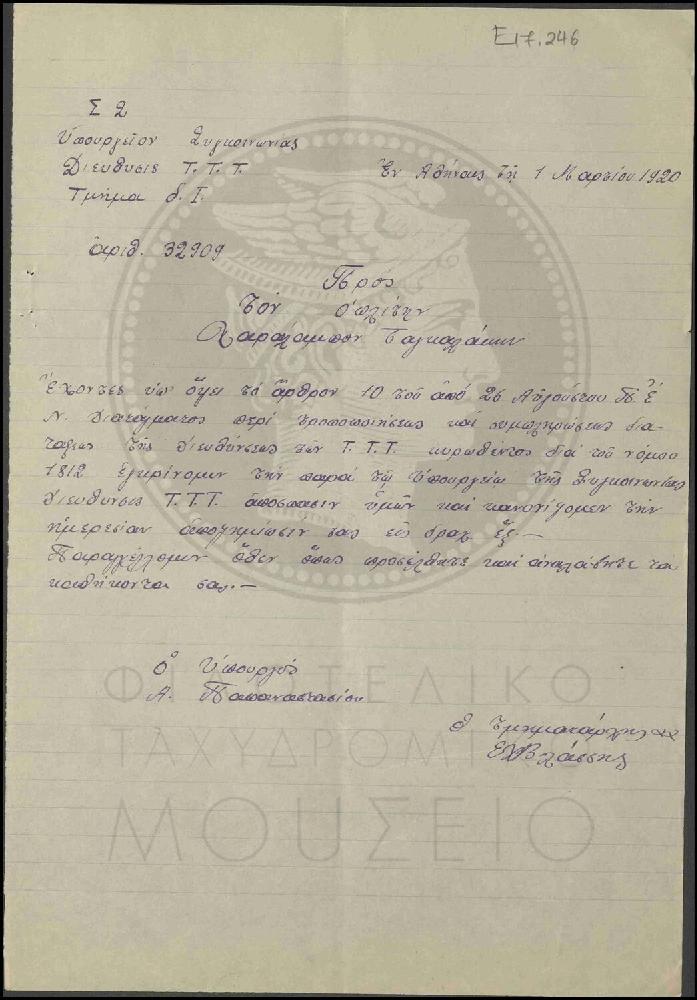 Ε17.246
Σ 2
Ὑπουργεῖον Συγκοινωνίας
Διεύθυσις Τ.Τ.Τ.
Ἐν Ἀθήναις τῇ 1 Μαρτίου 1920
Τμῆμα δ. Ι.
ἀριθ. 32909
Πρός
τὸν ὁπλίτην
Χαράλαμπον
Ἔχοντες ὑπ' ὄψει τὸ ἄρθρον 10 τοῦ ἀπὸ 26 Αὐγούστου Π. Ἐ
Ν. Διατάγματος περὶ τροποποιήσεως καὶ συμπληρώσεως δια-
τάξεως τῆς Διευθύνσεως τῶν Τ.Τ.Τ. κυρωθέντος διὰ τοῦ νόμου
1812 ἐγκρίνομεν τὴν παρὰ τῷ Ὑπουργείῳ τῆς Συγκοινωνίας
Διευθυνσις Τ.Τ.Τ. ἀπόσπασιν ὑμῶν καὶ κανονίζομεν τὴν
ἡμερεσίαν ἀποζημίωσιν σας εἰς δραχ. ἕξ.—
Παραγγέλλομεν ὅθεν ὅπως προσέλθητε καὶ ἀναλάβητε τὰ
καθήκοντα σας.—
Ὁ Ὑπουργός
Α. Παπαναστασίου
Ὁ Τμηματάρχης
Βλάσσης
ΦΙΛΟΤΕΛΙΚΟ
ΤΑΧΥΔΡΟΜΙΚΟ
ΜΟΥΣΕΙΟ